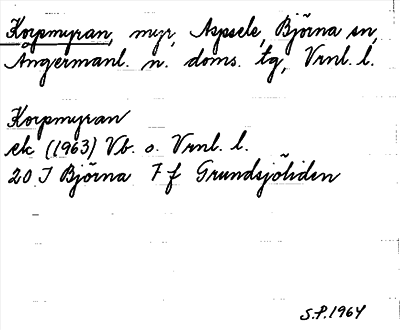 Korpmyran, myr, Aspsele, Björna sn,
Ångermanl. n. doms. tg, Vrnl. l.
Korpmyran
ek (1963) Vb. o. Vrnl. l.
20 J Björna 7 f Grundsjöliden
S.P. 1964